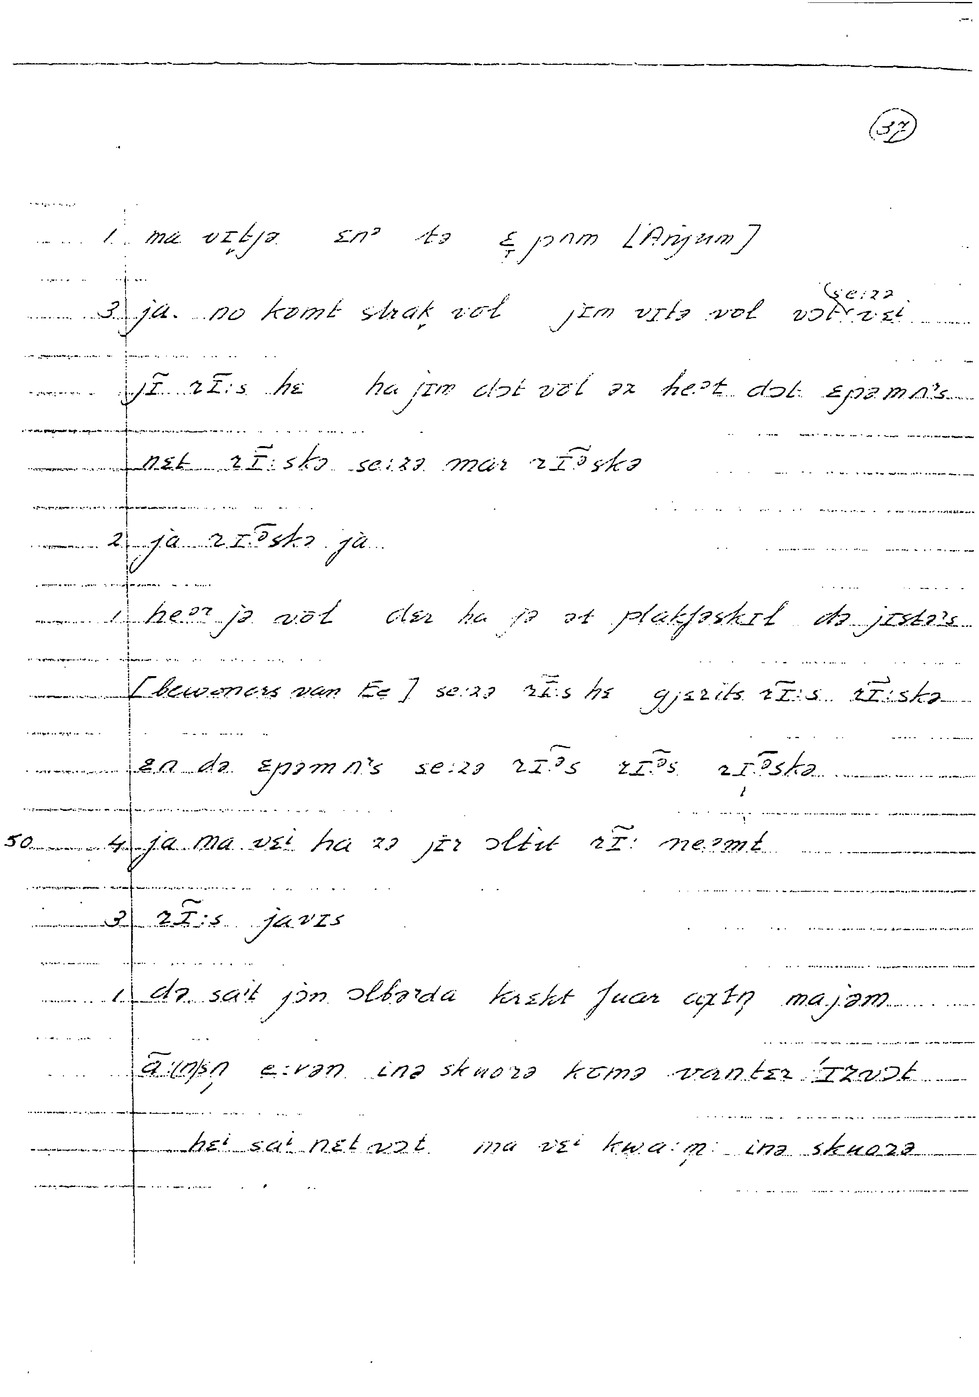 37
1 ma vɪtjə ɛnᵊ tə ɛpnm [Anjum]
3 ja. no kɵmt strak vɵl jɪm vɪtə vɵl vɔt seːzə vɛi
jĩ rĩːs hɛ ha jɪm dɔt vɵl ər heᵊt dɔt ɛpəmn's
nɛt rĩːskə seːzə mar rĩᵊskə
2 ja rĩᵊskə ja
1 heᵊr jə vɵl dɛr ha jə ət plakfəskɪl də jɪstə's
[bewoners van Ee] seːzə rĩːs hɛ gjɛrits rĩːs rĩːskə
ɛn də ɛpəmn's seːzə rĩᵊs rĩᵊs rĩᵊskə
50 4 ja ma vɛi ha zə jɪr ɔltit rĩː neᵊmt
3 rĩːs javɪs
1 də sait jən ɔlbərda krɛkt fuar axtn̩ majəm
ãː(n)sn̩ eːvən inə skuorə kɵmə vantɛr 'ɪzvɔt
hɛi sai nɛt vɔt ma vɛi kwaːm̩ inə skuorə